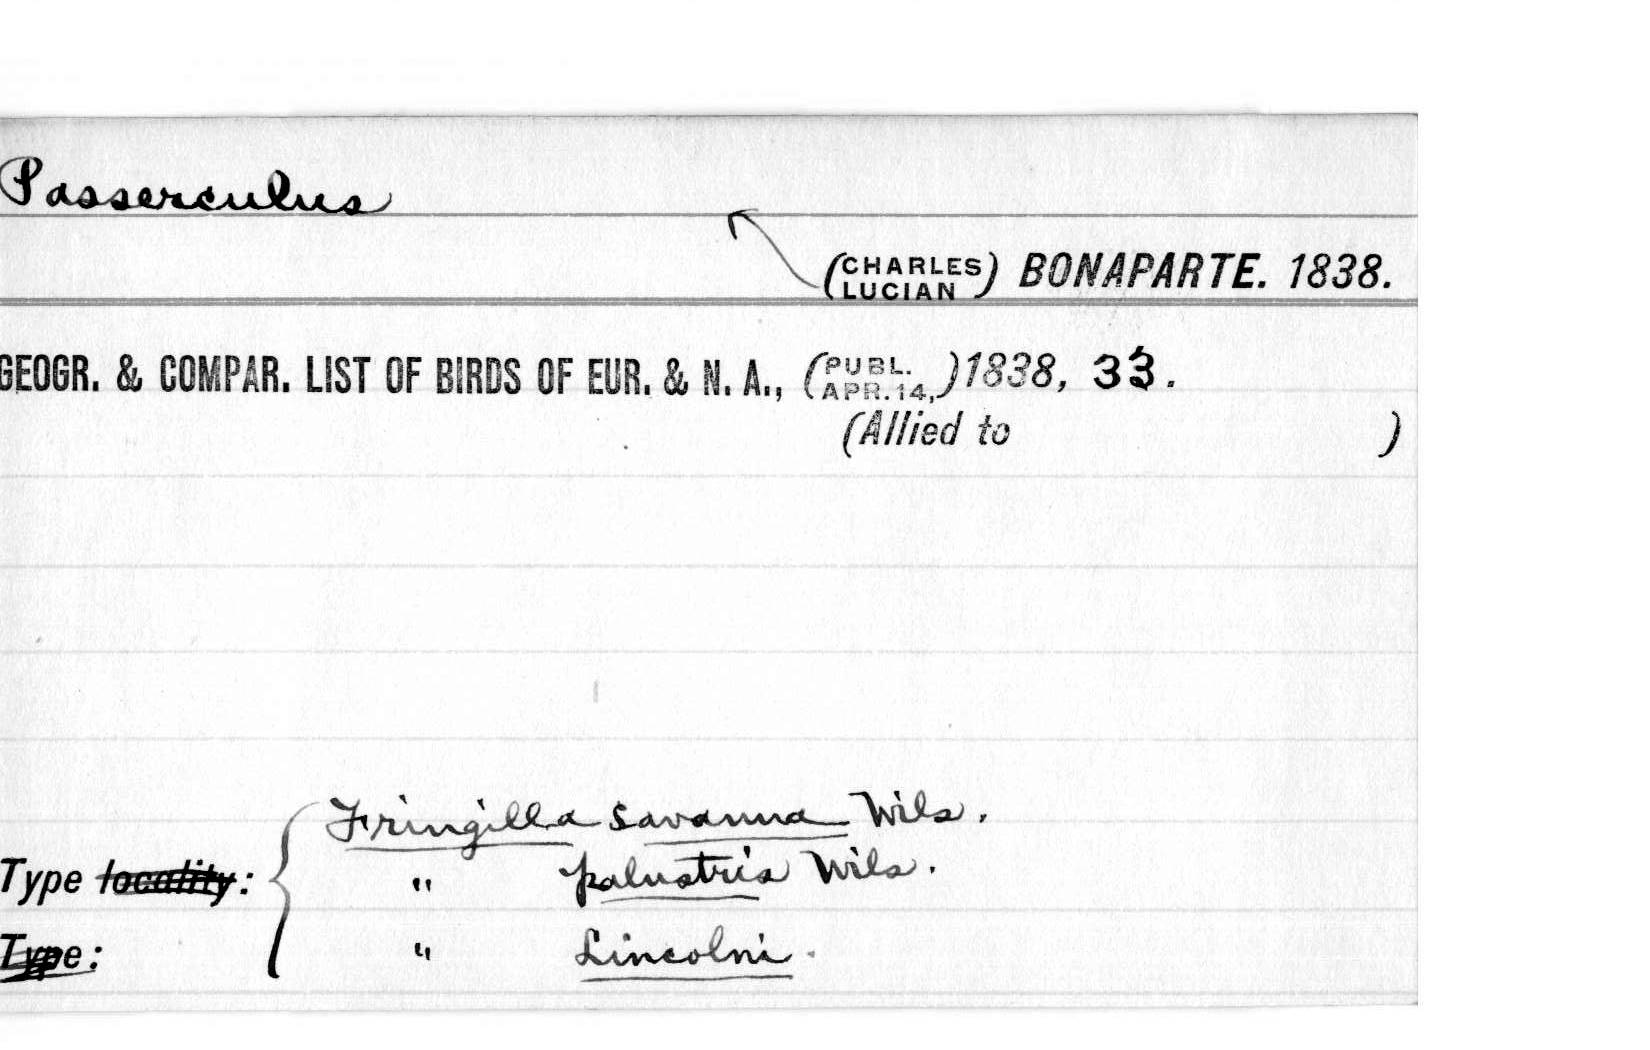 Passerculus
(CHARLES LUCIAN) BONAPARTE. 1838.
GEOGR. & COMPAR. LIST OF BIRDS OF EUR. & N. A., (PUBL. APR. 14,) 1838, 33.
(Allied to )
Fringilla savanna Wils.
Type locality: " palustris Wils.
Type: " Lincolni.